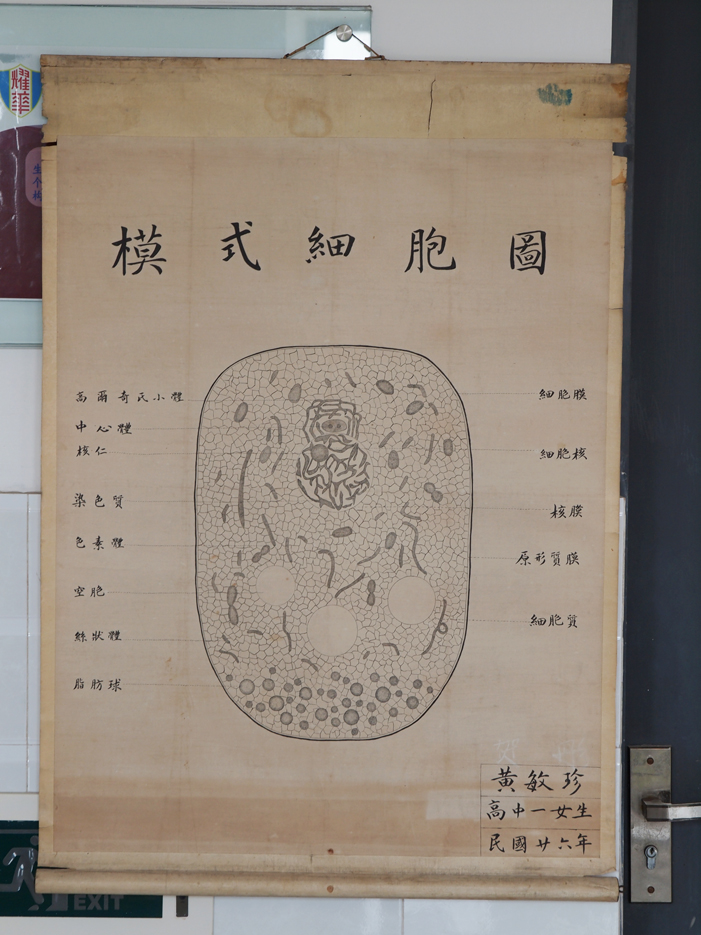 耀華
模式細胞圖
高爾奇氏小體
中心體
核仁
染色質
色素體
空胞
絲狀體
脂肪球
細胞膜
細胞核
核膜
原形質膜
細胞質
黃敏珍
高中一女生
民國廿六年
EXIT